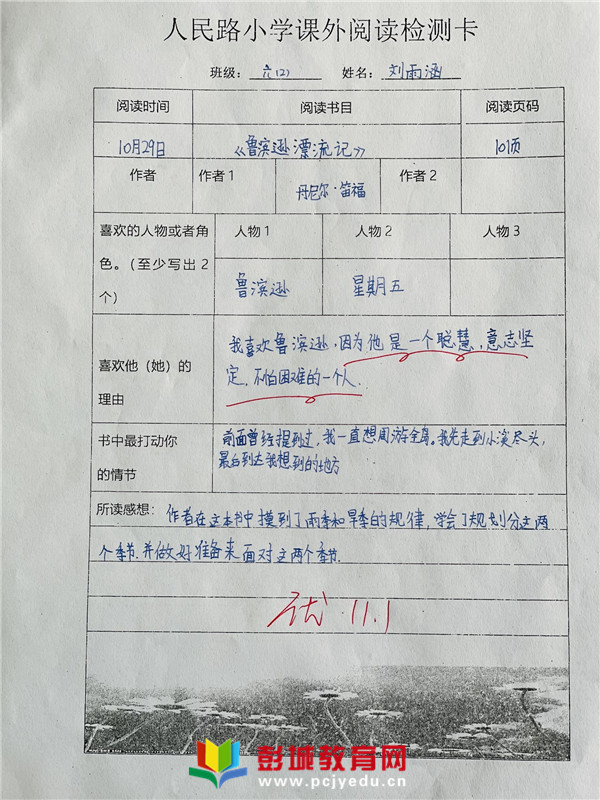 人民路小学课外阅读检测卡
班级：六(2) 姓名：刘雨涵
阅读时间 阅读书目 阅读页码
10月29日 《鲁滨逊漂流记》 101页
作者 作者1 丹尼尔·笛福 作者2
喜欢的人物或者角色。（至少写出2个） 人物1 人物2 人物3
鲁滨逊 星期五
喜欢他（她）的理由
我喜欢鲁滨逊，因为他是一个聪慧，意志坚
定，不怕困难的一个人.
书中最打动你的情节
前面曾经提到过，我一直想周游全岛。我先走到小溪尽头，
最后到达我想到的地方
所读感想：作者在这本书中摸到了雨季和旱季的规律，学会了规划分这两
个季节.并做好准备来面对这两个季节.
优 11.1
彭城教育网
www.pcjyedu.cn